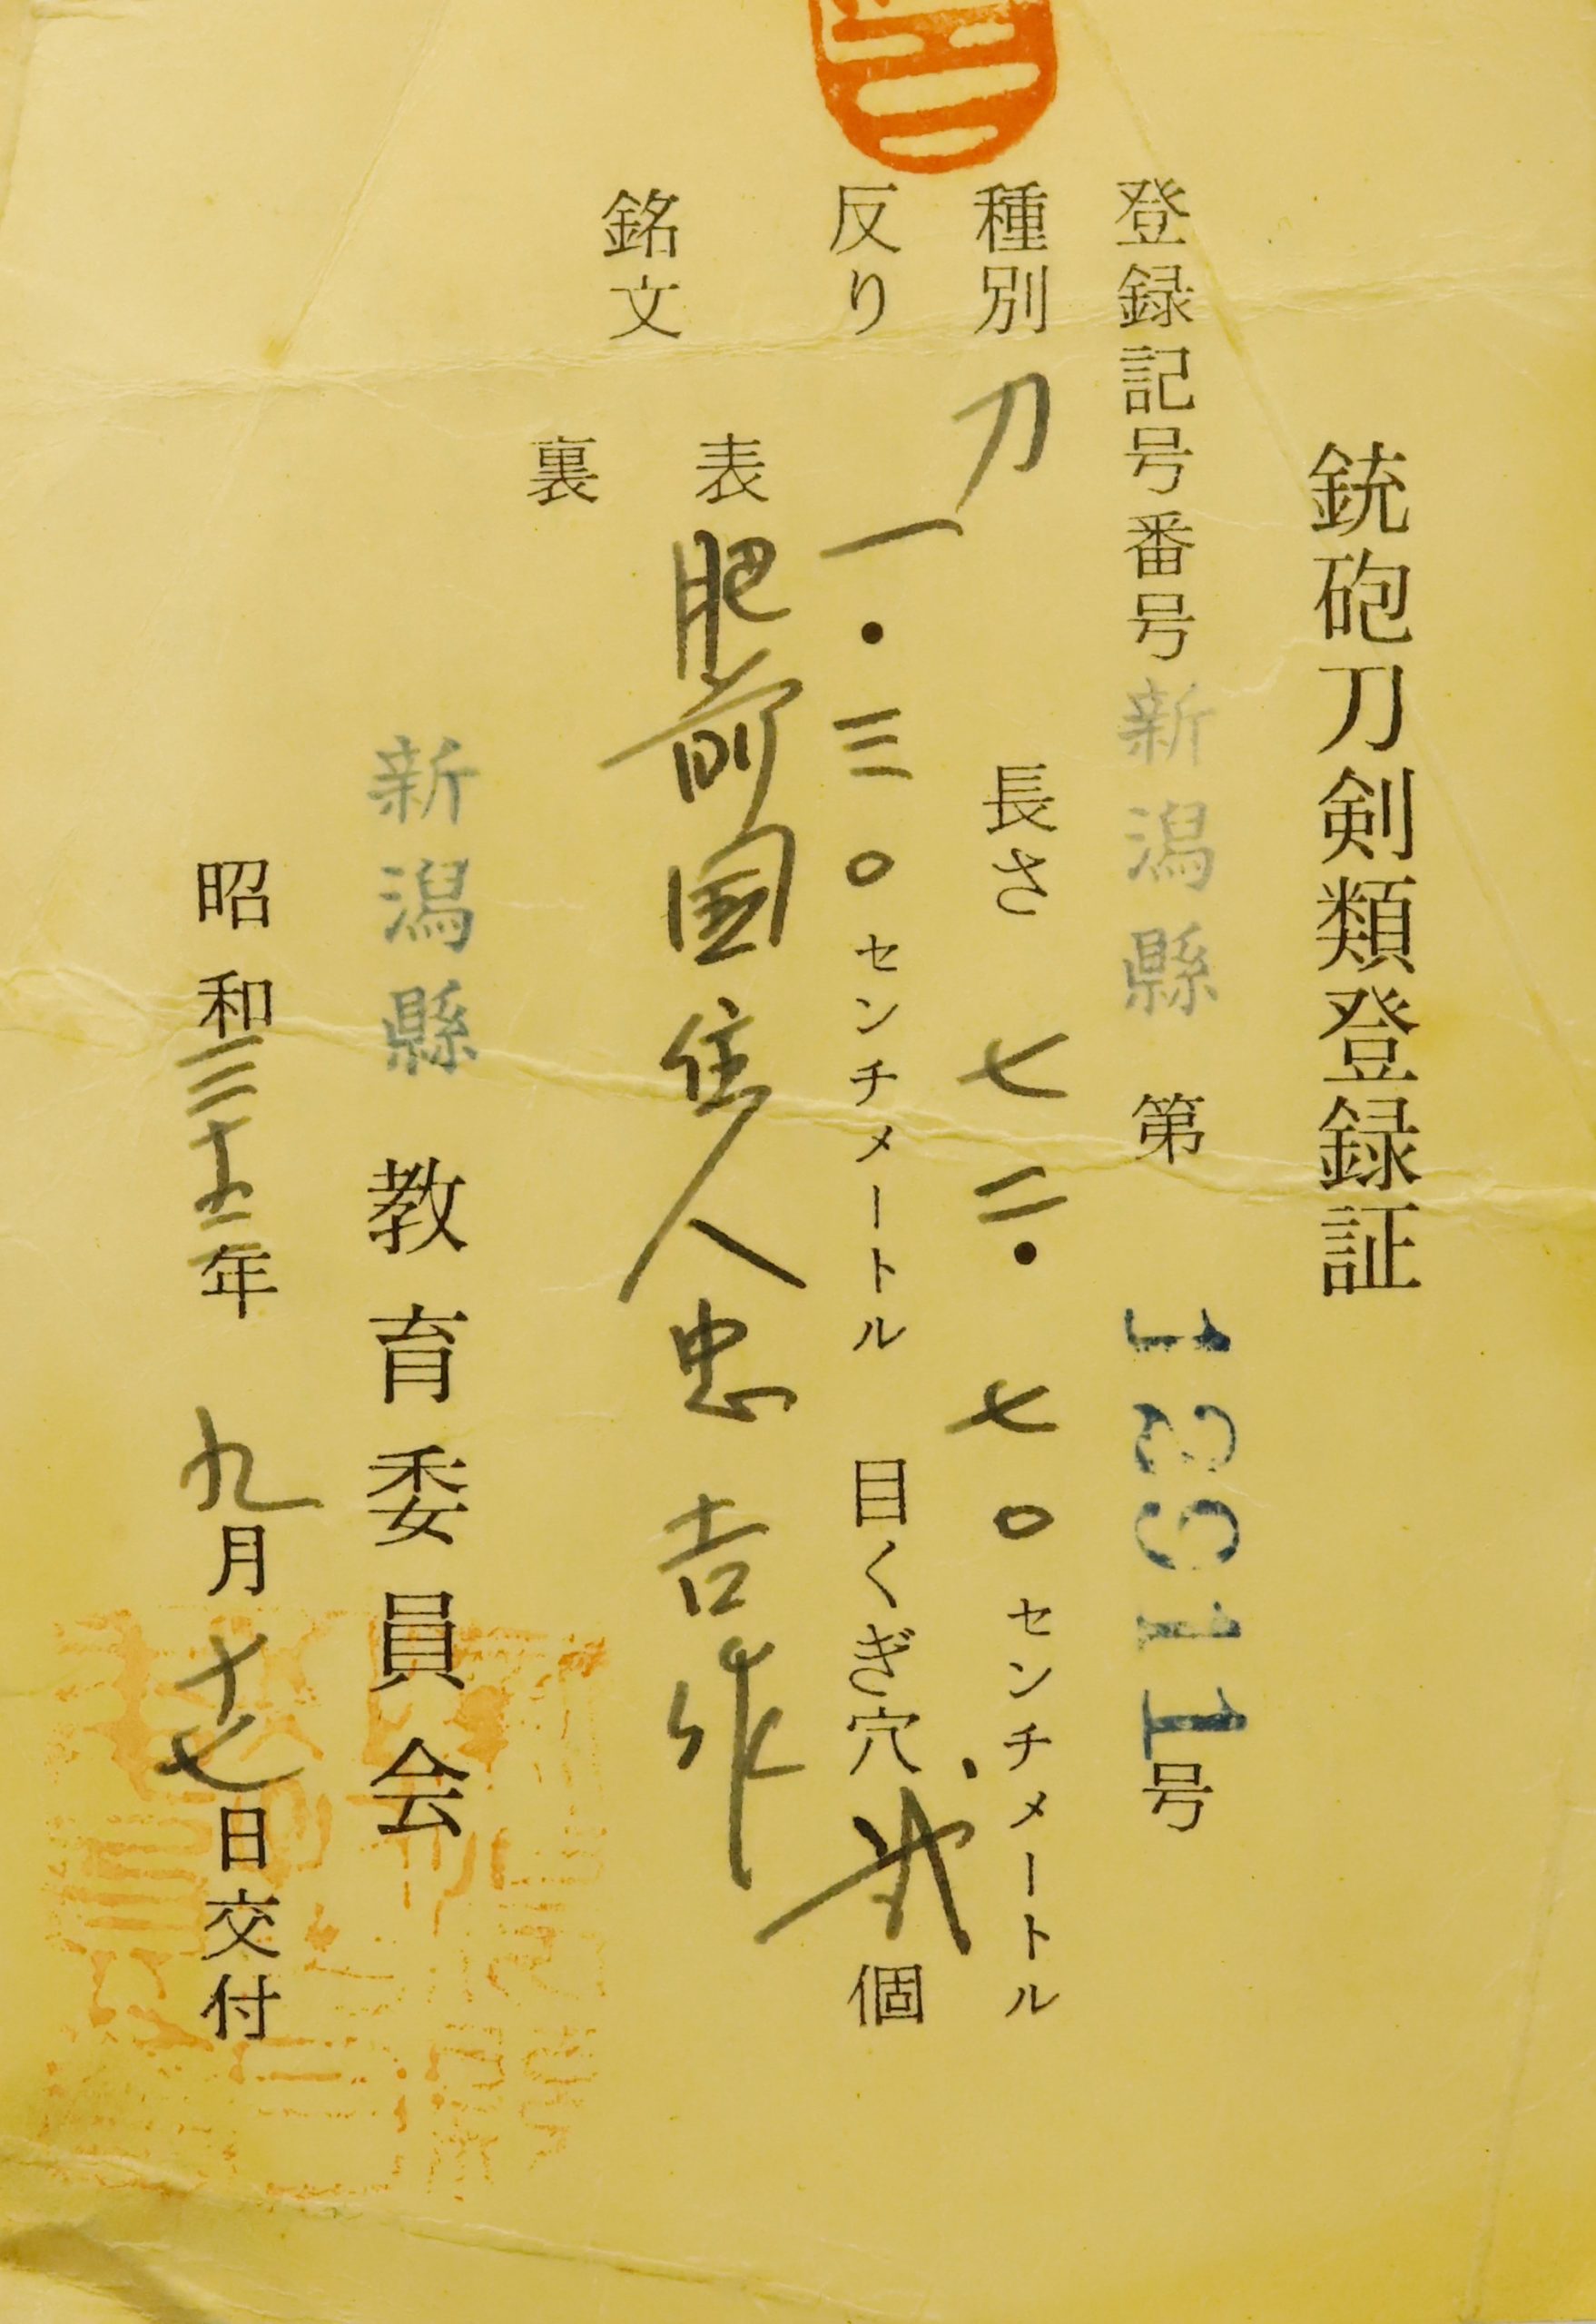 銃砲刀剣類登録証
登録記号番号 新潟縣 第 号
種別 刀 長さ 七二・七〇センチメートル
反り 一・三〇センチメートル 目くぎ穴 弐個
表 肥前国住人忠吉作
銘文
裏
新潟縣 教育委員会
昭和三十 年 九月十七日交付